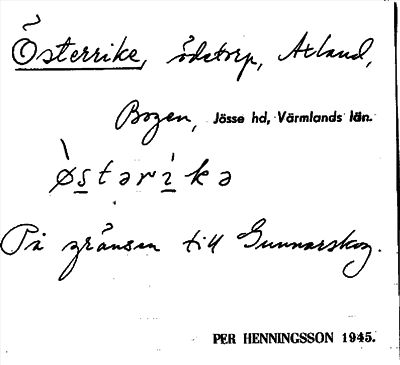 Österrike, ödetorp, Atland,
Bogen, Jösse hd, Värmlands län.
ø̀stərìkə
På gränsen till Gunnarskog.
PER HENNINGSSON 1945.